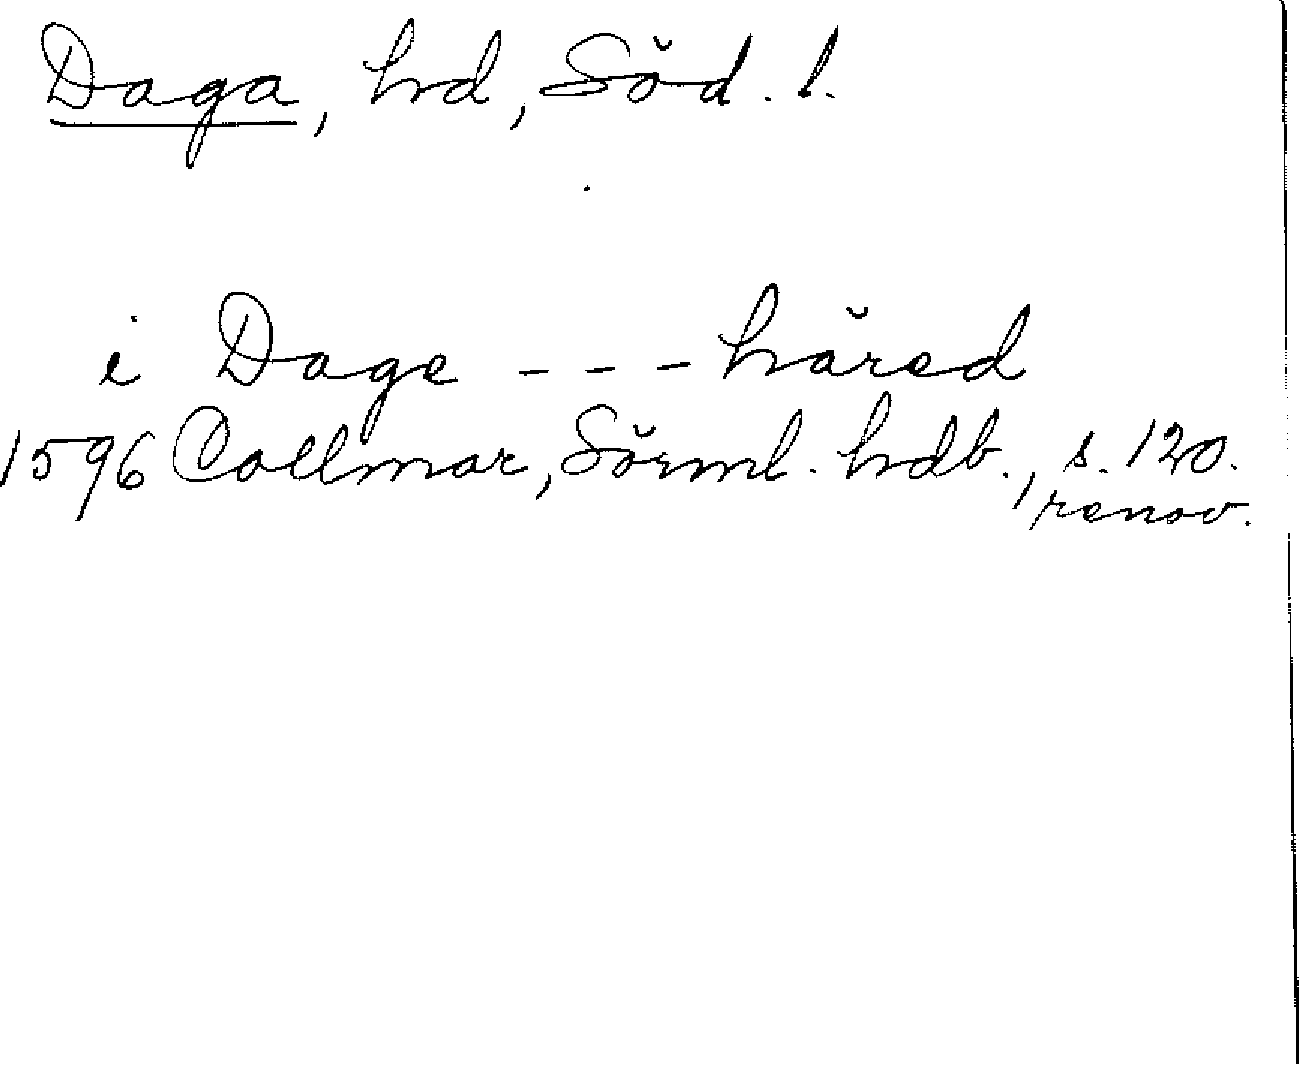 Daga, hd, Söd. l.
i Dage - - - häred
1596 Collmar, Sörml. hdb., s. 120.
renov.